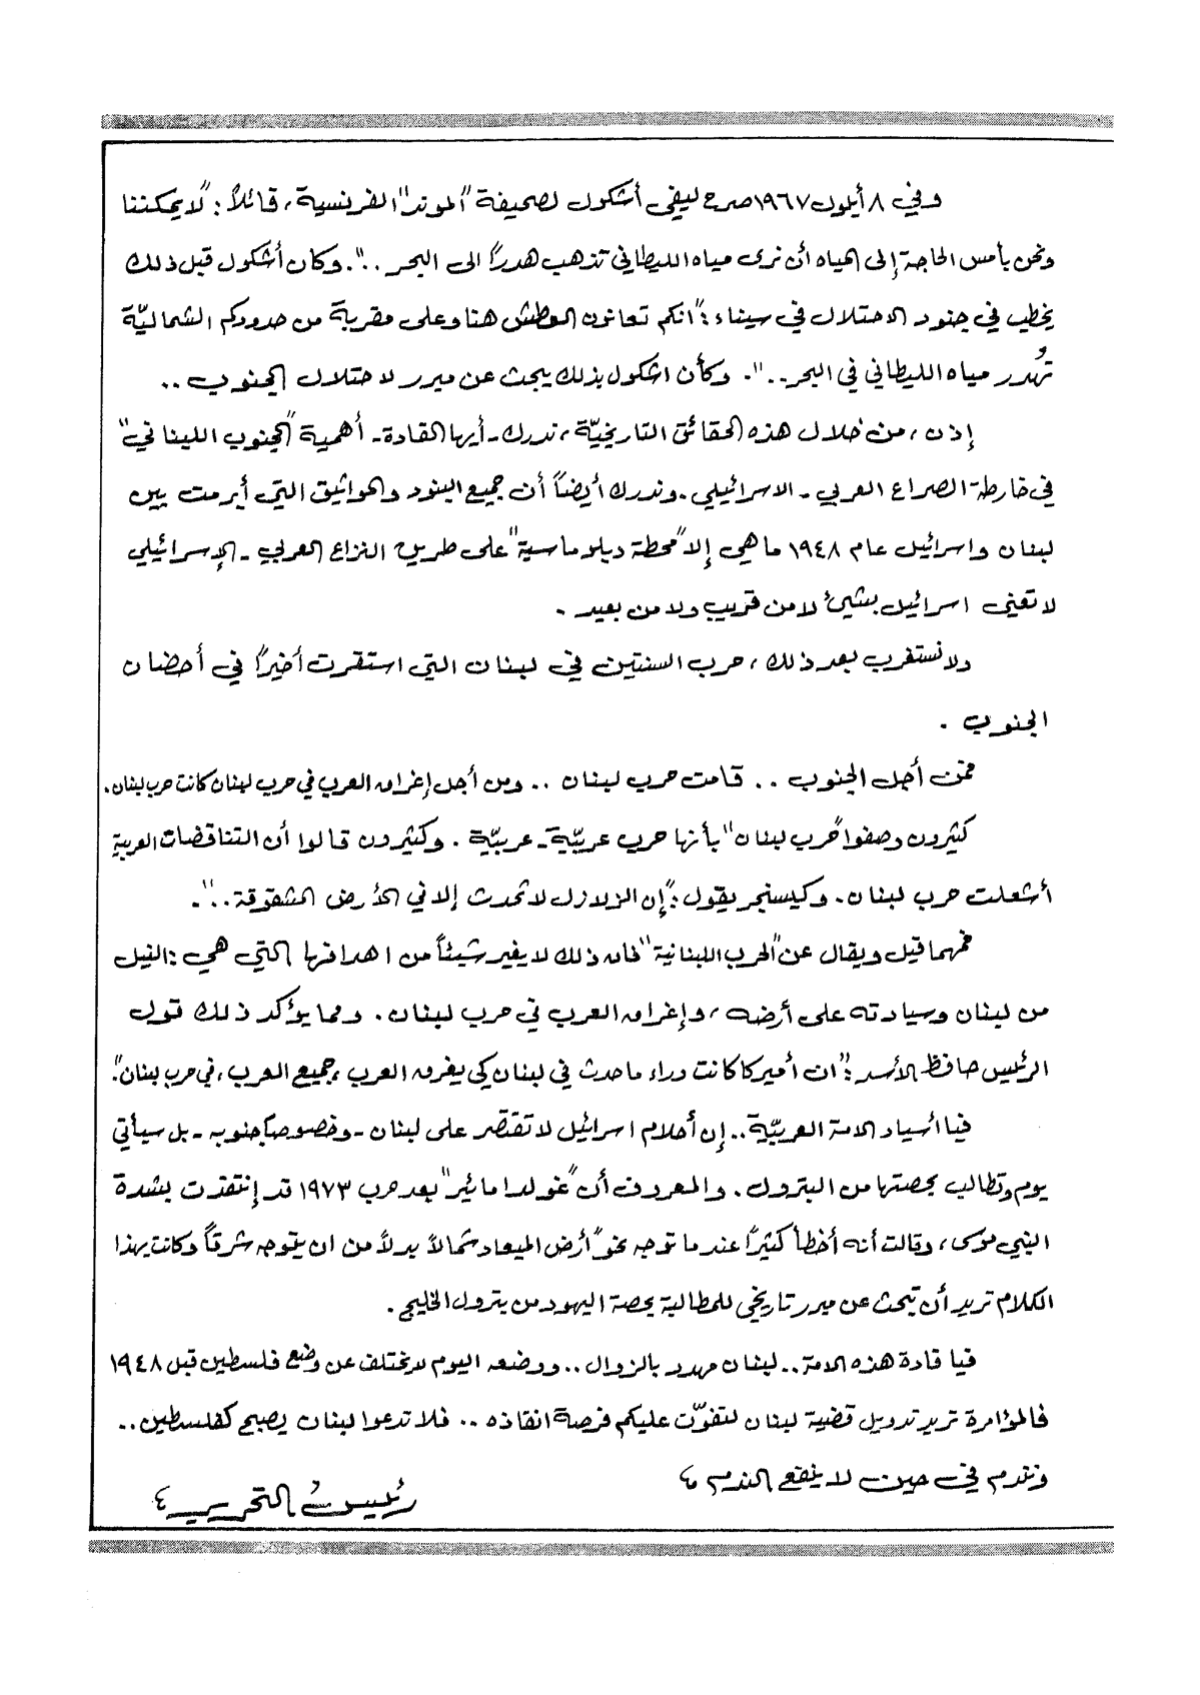 وفي ٨ أيلول ١٩٦٧ صرح ليفي أشكول لصحيفة "الموند" الفرنسية، قائلاً: "لا يمكننا
ونحن بأمس الحاجة إلى المياه أن نرى مياه الليطاني تذهب هدراً الى البحر ..". وكان أشكول قبل ذلك
يخطب في جنود الاحتلال في سيناء: "انكم تعانون العطش هنا وعلى مقربة من حدودكم الشماليّة
تُهدر مياه الليطاني في البحر..". وكأن اشكول بذلك يبحث عن مبرر لاحتلال الجنوب ..
إذن، من خلال هذه الحقائق التاريخيّة، ندرك - أيها القادة - أهمية "الجنوب اللبناني"
في خارطة الصراع العربي - الاسرائيلي. وندرك أيضاً أن جميع البنود والمواثيق التي أبرمت بين
لبنان واسرائيل عام ١٩٤٨ ما هي إلا "محطة ديلوماسية" على طريق النزاع العربي - الإسرائيلي
لا تعني اسرائيل بشيئ لا من قريب ولا من بعيد .
ولا نستغرب بعد ذلك، حرب السنتين في لبنان التي استقرت أخيراً في أحضان
الجنوب .
فمن أجل الجنوب .. قامت حرب لبنان .. ومن أجل إغراق العرب في حرب لبنان كانت حرب لبنان.
كثيرون وصفوا "حرب لبنان" بأنها حرب عربيّة - عربيّة . وكثيرون قالوا أن التناقضات العربية
أشعلت حرب لبنان. وكيسنجر يقول: "إن الزلازل لا تحدث إلا في الأرض المشقوقة ..".
فمهما قيل ويقال عن "الحرب اللبنانية" فان ذلك لا يغير شيئاً من اهدافها التي هي: النيل
من لبنان وسيادته على أرضه، وإغراق العرب في حرب لبنان. ومما يؤكد ذلك قول
الرئيس حافظ الأسد: "ان أميركا كانت وراء ما حدث في لبنان كي يغرق العرب، جميع العرب، في حرب لبنان".
فيا أسياد الامة العربيّة.. إن أحلام اسرائيل لا تقتصر على لبنان - وخصوصاً جنوبه - بل سيأتي
يوم وتطالب بحصتها من البترول. والمعروف أن "غولدا مائير" بعد حرب ١٩٧٣ قد إنتقدت بشدة
النبي موسى، وقالت أنه أخطأ كثيراً عندما توجه نحو "أرض الميعاد شمالاً بدلاً من ان يتوجه شرقاً وكانت بهذا
الكلام تريد أن تبحث عن مبرر تاريخي للمطالبة بحصة اليهود من بترول الخليج.
فيا قادة هذه الامة.. لبنان مهدد بالزوال.. ووضعه اليوم لا يختلف عن وضع فلسطين قبل ١٩٤٨
فالمؤامرة تريد تدويل قضية لبنان لتفوّت عليكم فرصة انقاذه .. فلا تدعوا لبنان يصبح كفلسطين..
ونندم في حين لا ينفع الندم
رئيس التحرير